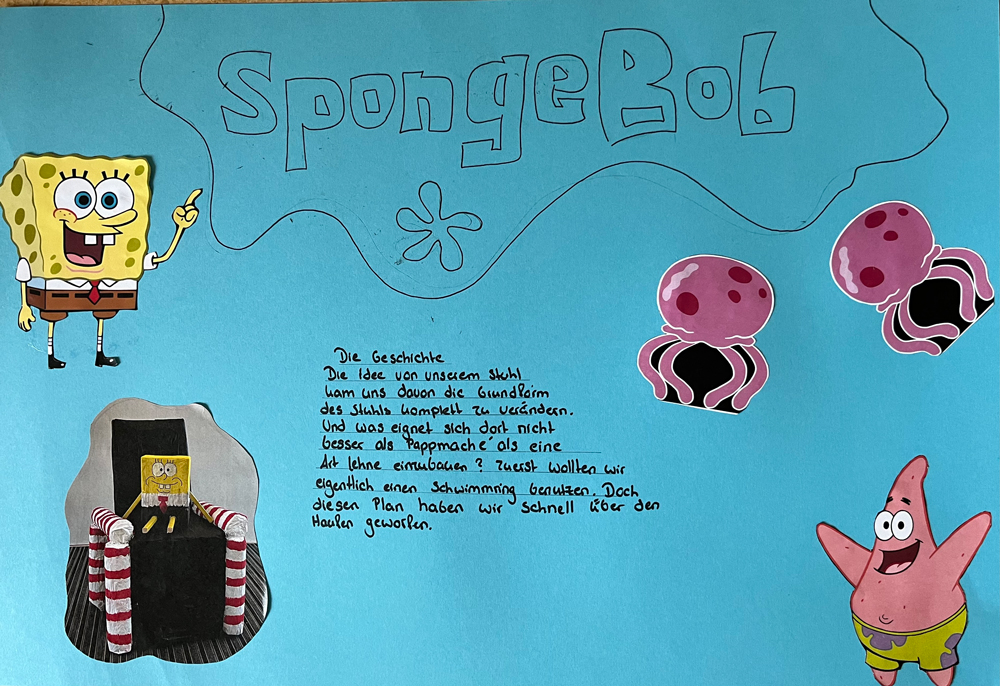 SpongeBob
Die Geschichte
Die Idee von unserem Stuhl
kam uns davon die Grundform
des Stuhls komplett zu verändern.
Und was eignet sich dort nicht
besser als Pappmaché als eine
Art lehne einzubauen? Zuerst wollten wir
eigentlich einen Schwimmring benutzen. Doch
diesen Plan haben wir schnell über den
Haufen geworfen.